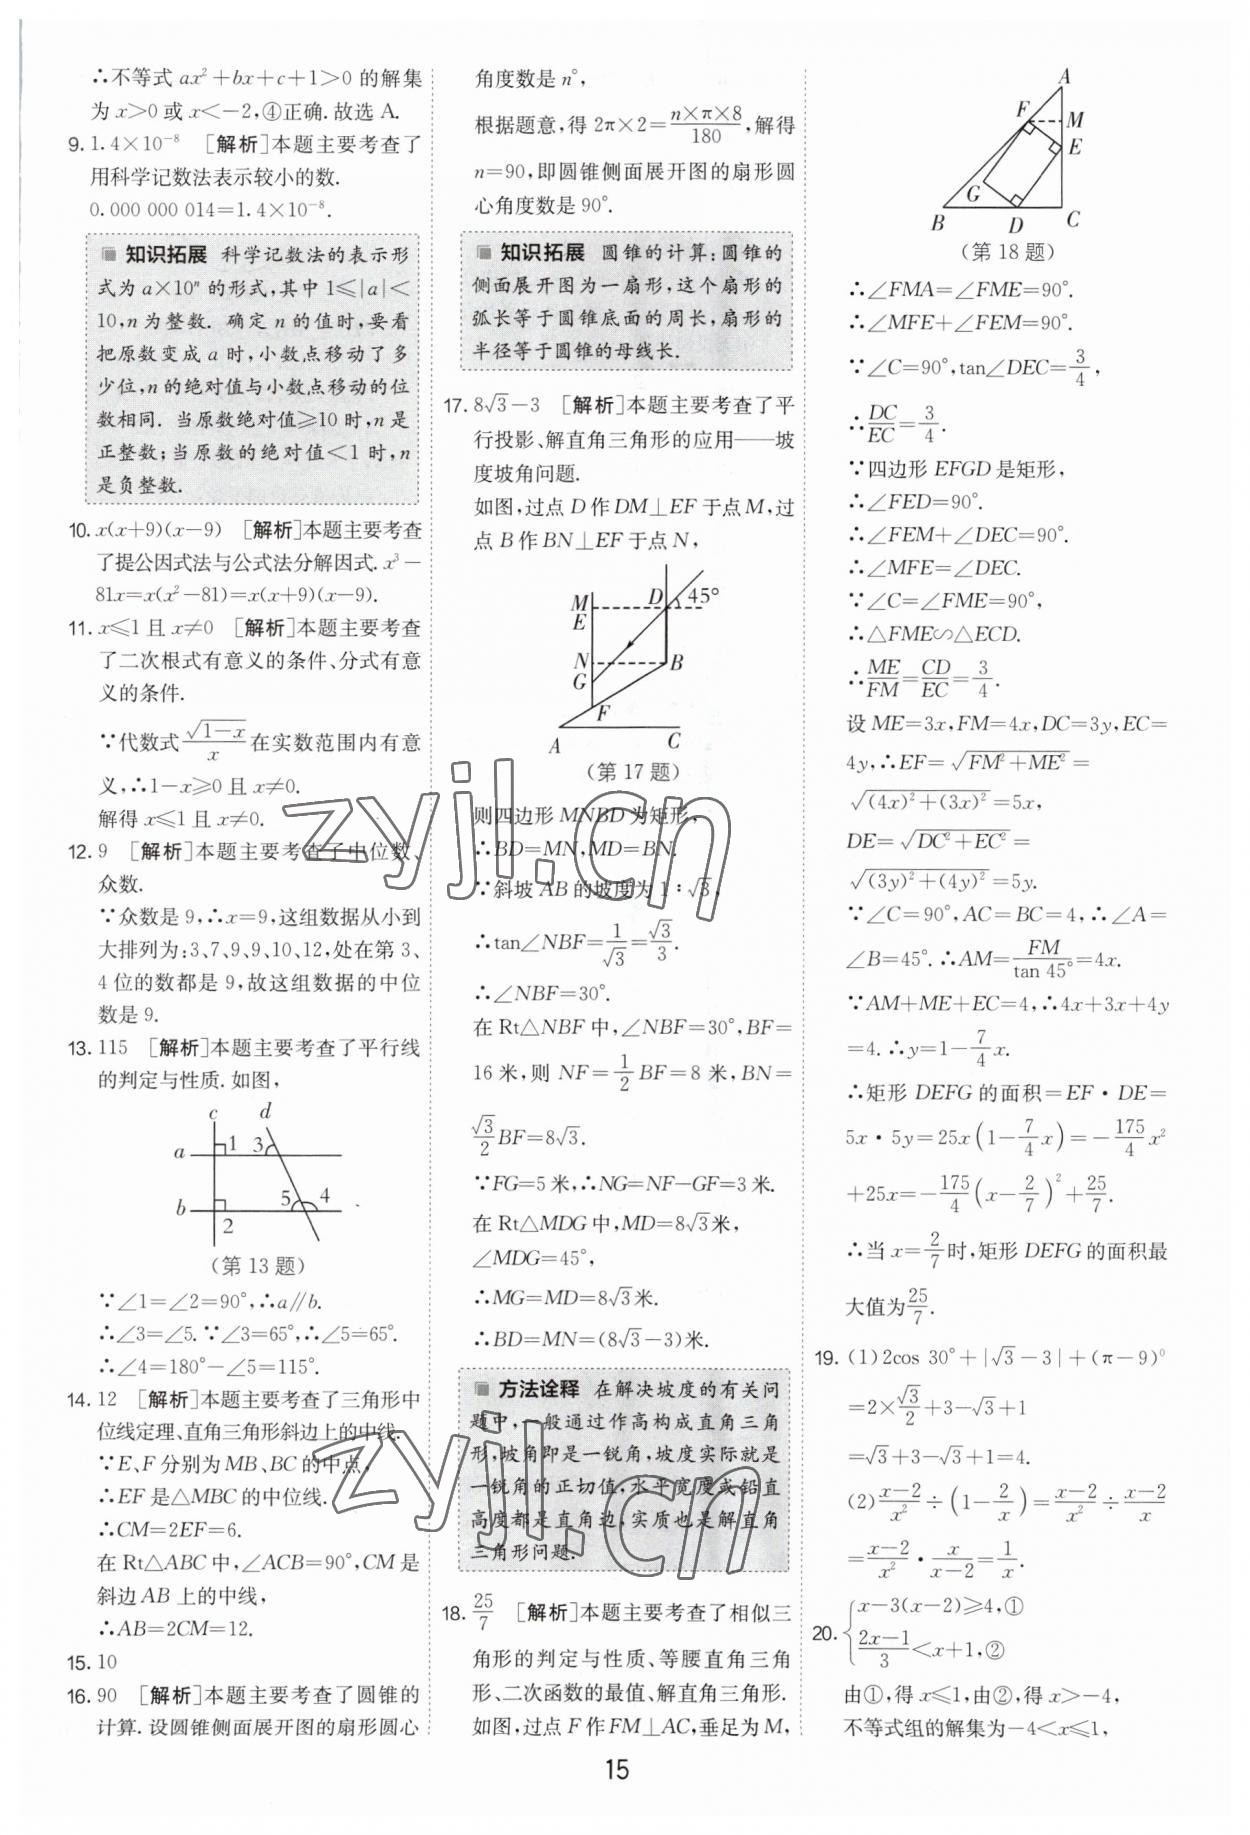 ∴不等式 ax²+bx+c+1>0 的解集
为 x>0 或 x<-2,④正确.故选 A.
9. 1.4×10⁻⁸ [解析]本题主要考查了
用科学记数法表示较小的数.
0.000 000 014=1.4×10⁻⁸.
知识拓展 科学记数法的表示形
式为 a×10ⁿ 的形式,其中 1≤|a|<
10,n 为整数. 确定 n 的值时,要看
把原数变成 a 时,小数点移动了多
少位,n 的绝对值与小数点移动的位
数相同. 当原数绝对值≥10 时,n 是
正整数;当原数的绝对值<1 时,n
是负整数.
10. x(x+9)(x-9) [解析]本题主要考查
了提公因式法与公式法分解因式. x³-
81x=x(x²-81)=x(x+9)(x-9).
11. x≤1 且 x≠0 [解析]本题主要考查
了二次根式有意义的条件、分式有意
义的条件.
∵代数式 √(1-x)/x 在实数范围内有意
义,∴1-x≥0 且 x≠0.
解得 x≤1 且 x≠0.
12. 9 [解析]本题主要考查了中位数、
众数.
∵众数是 9,∴x=9,这组数据从小到
大排列为:3,7,9,9,10,12,处在第 3、
4 位的数都是 9,故这组数据的中位
数是 9.
13. 115 [解析]本题主要考查了平行线
的判定与性质.如图,
c d
a 1 3
b 5 4
2
(第 13 题)
∵∠1=∠2=90°,∴a∥b.
∴∠3=∠5.∵∠3=65°,∴∠5=65°.
∴∠4=180°-∠5=115°.
14. 12 [解析]本题主要考查了三角形中
位线定理、直角三角形斜边上的中线.
∵E、F 分别为 MB、BC 的中点,
∴EF 是△MBC 的中位线.
∴CM=2EF=6.
在 Rt△ABC 中,∠ACB=90°,CM 是
斜边 AB 上的中线,
∴AB=2CM=12.
15. 10
16. 90 [解析]本题主要考查了圆锥的
计算.设圆锥侧面展开图的扇形圆心
角度数是 n°,
根据题意,得 2π×2=n×π×8/180,解得
n=90,即圆锥侧面展开图的扇形圆
心角度数是 90°.
知识拓展 圆锥的计算:圆锥的
侧面展开图为一扇形,这个扇形的
弧长等于圆锥底面的周长,扇形的
半径等于圆锥的母线长.
17. 8√3-3 [解析]本题主要考查了平
行投影、解直角三角形的应用——坡
度坡角问题.
如图,过点 D 作 DM⊥EF 于点 M,过
点 B 作 BN⊥EF 于点 N,
M D 45°
E
N B
G
F
A C
(第 17 题)
则四边形 MNBD 为矩形,
∴BD=MN,MD=BN.
∵斜坡 AB 的坡度为 1∶√3,
∴tan∠NBF=1/√3=√3/3.
∴∠NBF=30°.
在 Rt△NBF 中,∠NBF=30°,BF=
16 米,则 NF=1/2 BF=8 米,BN=
√3/2 BF=8√3.
∵FG=5 米,∴NG=NF-GF=3 米.
在 Rt△MDG 中,MD=8√3米,
∠MDG=45°,
∴MG=MD=8√3米.
∴BD=MN=(8√3-3)米.
方法诠释 在解决坡度的有关问
题中,一般通过作高构成直角三角
形,坡角即是一锐角,坡度实际就是
一锐角的正切值,水平宽度或铅直
高度都是直角边,实质也是解直角
三角形问题.
18. 25/7 [解析]本题主要考查了相似三
角形的判定与性质、等腰直角三角
形、二次函数的最值、解直角三角形.
如图,过点 F 作 FM⊥AC,垂足为 M,
A
F M
E
G
B D C
(第 18 题)
∴∠FMA=∠FME=90°.
∴∠MFE+∠FEM=90°.
∵∠C=90°,tan∠DEC=3/4,
∴DC/EC=3/4.
∵四边形 EFGD 是矩形,
∴∠FED=90°.
∴∠FEM+∠DEC=90°.
∴∠MFE=∠DEC.
∵∠C=∠FME=90°,
∴△FME∽△ECD.
∴ME/FM=CD/EC=3/4.
设 ME=3x,FM=4x,DC=3y,EC=
4y,∴EF=√(FM²+ME²)=
√((4x)²+(3x)²)=5x,
DE=√(DC²+EC²)=
√((3y)²+(4y)²)=5y.
∵∠C=90°,AC=BC=4,∴∠A=
∠B=45°.∴AM=FM/tan 45°=4x.
∵AM+ME+EC=4,∴4x+3x+4y
=4.∴y=1-7/4 x.
∴矩形 DEFG 的面积=EF·DE=
5x·5y=25x(1-7/4 x)=-175/4 x²
+25x=-175/4(x-2/7)²+25/7.
∴当 x=2/7时,矩形 DEFG 的面积最
大值为25/7.
19. (1)2cos 30°+|√3-3|+(π-9)⁰
=2×√3/2+3-√3+1
=√3+3-√3+1=4.
(2)(x-2)/x²÷(1-2/x)=(x-2)/x²÷(x-2)/x
=(x-2)/x²·x/(x-2)=1/x.
20. { x-3(x-2)≥4,①
(2x-1)/3<x+1,②
由①,得 x≤1,由②,得 x>-4,
不等式组的解集为-4<x≤1,
15
zyjl.cn
zyjl.cn